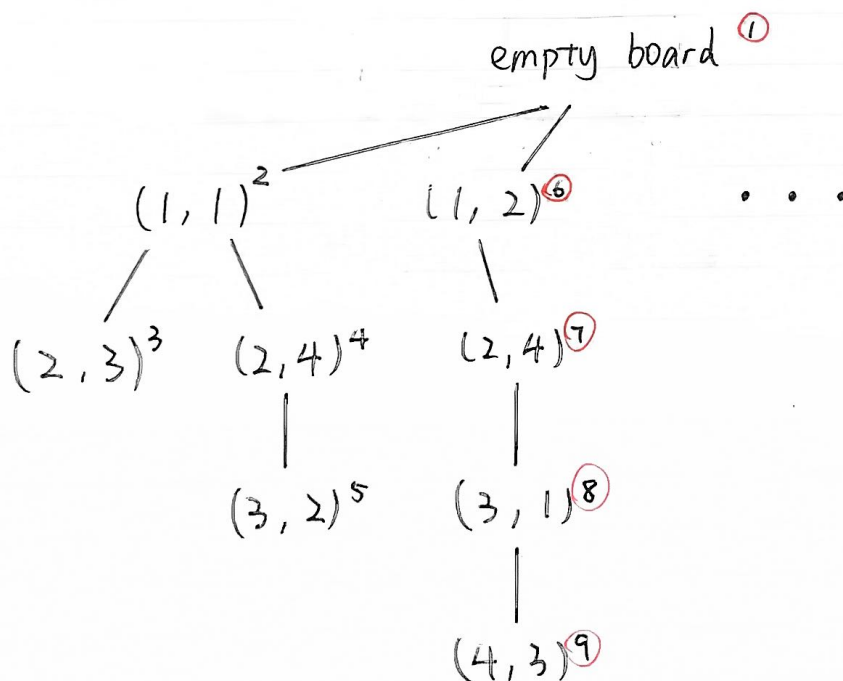 empty board ①
(1, 1)² (1, 2)⑥ • • •
(2, 3)³ (2, 4)⁴ (2, 4)⑦
(3, 2)⁵ (3, 1)⑧
(4, 3)⑨